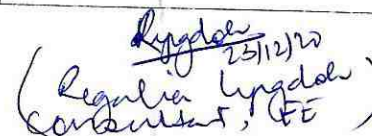 Lyngdoh
23/12/20
(Regalia Lyngdoh)
Consultant, EE